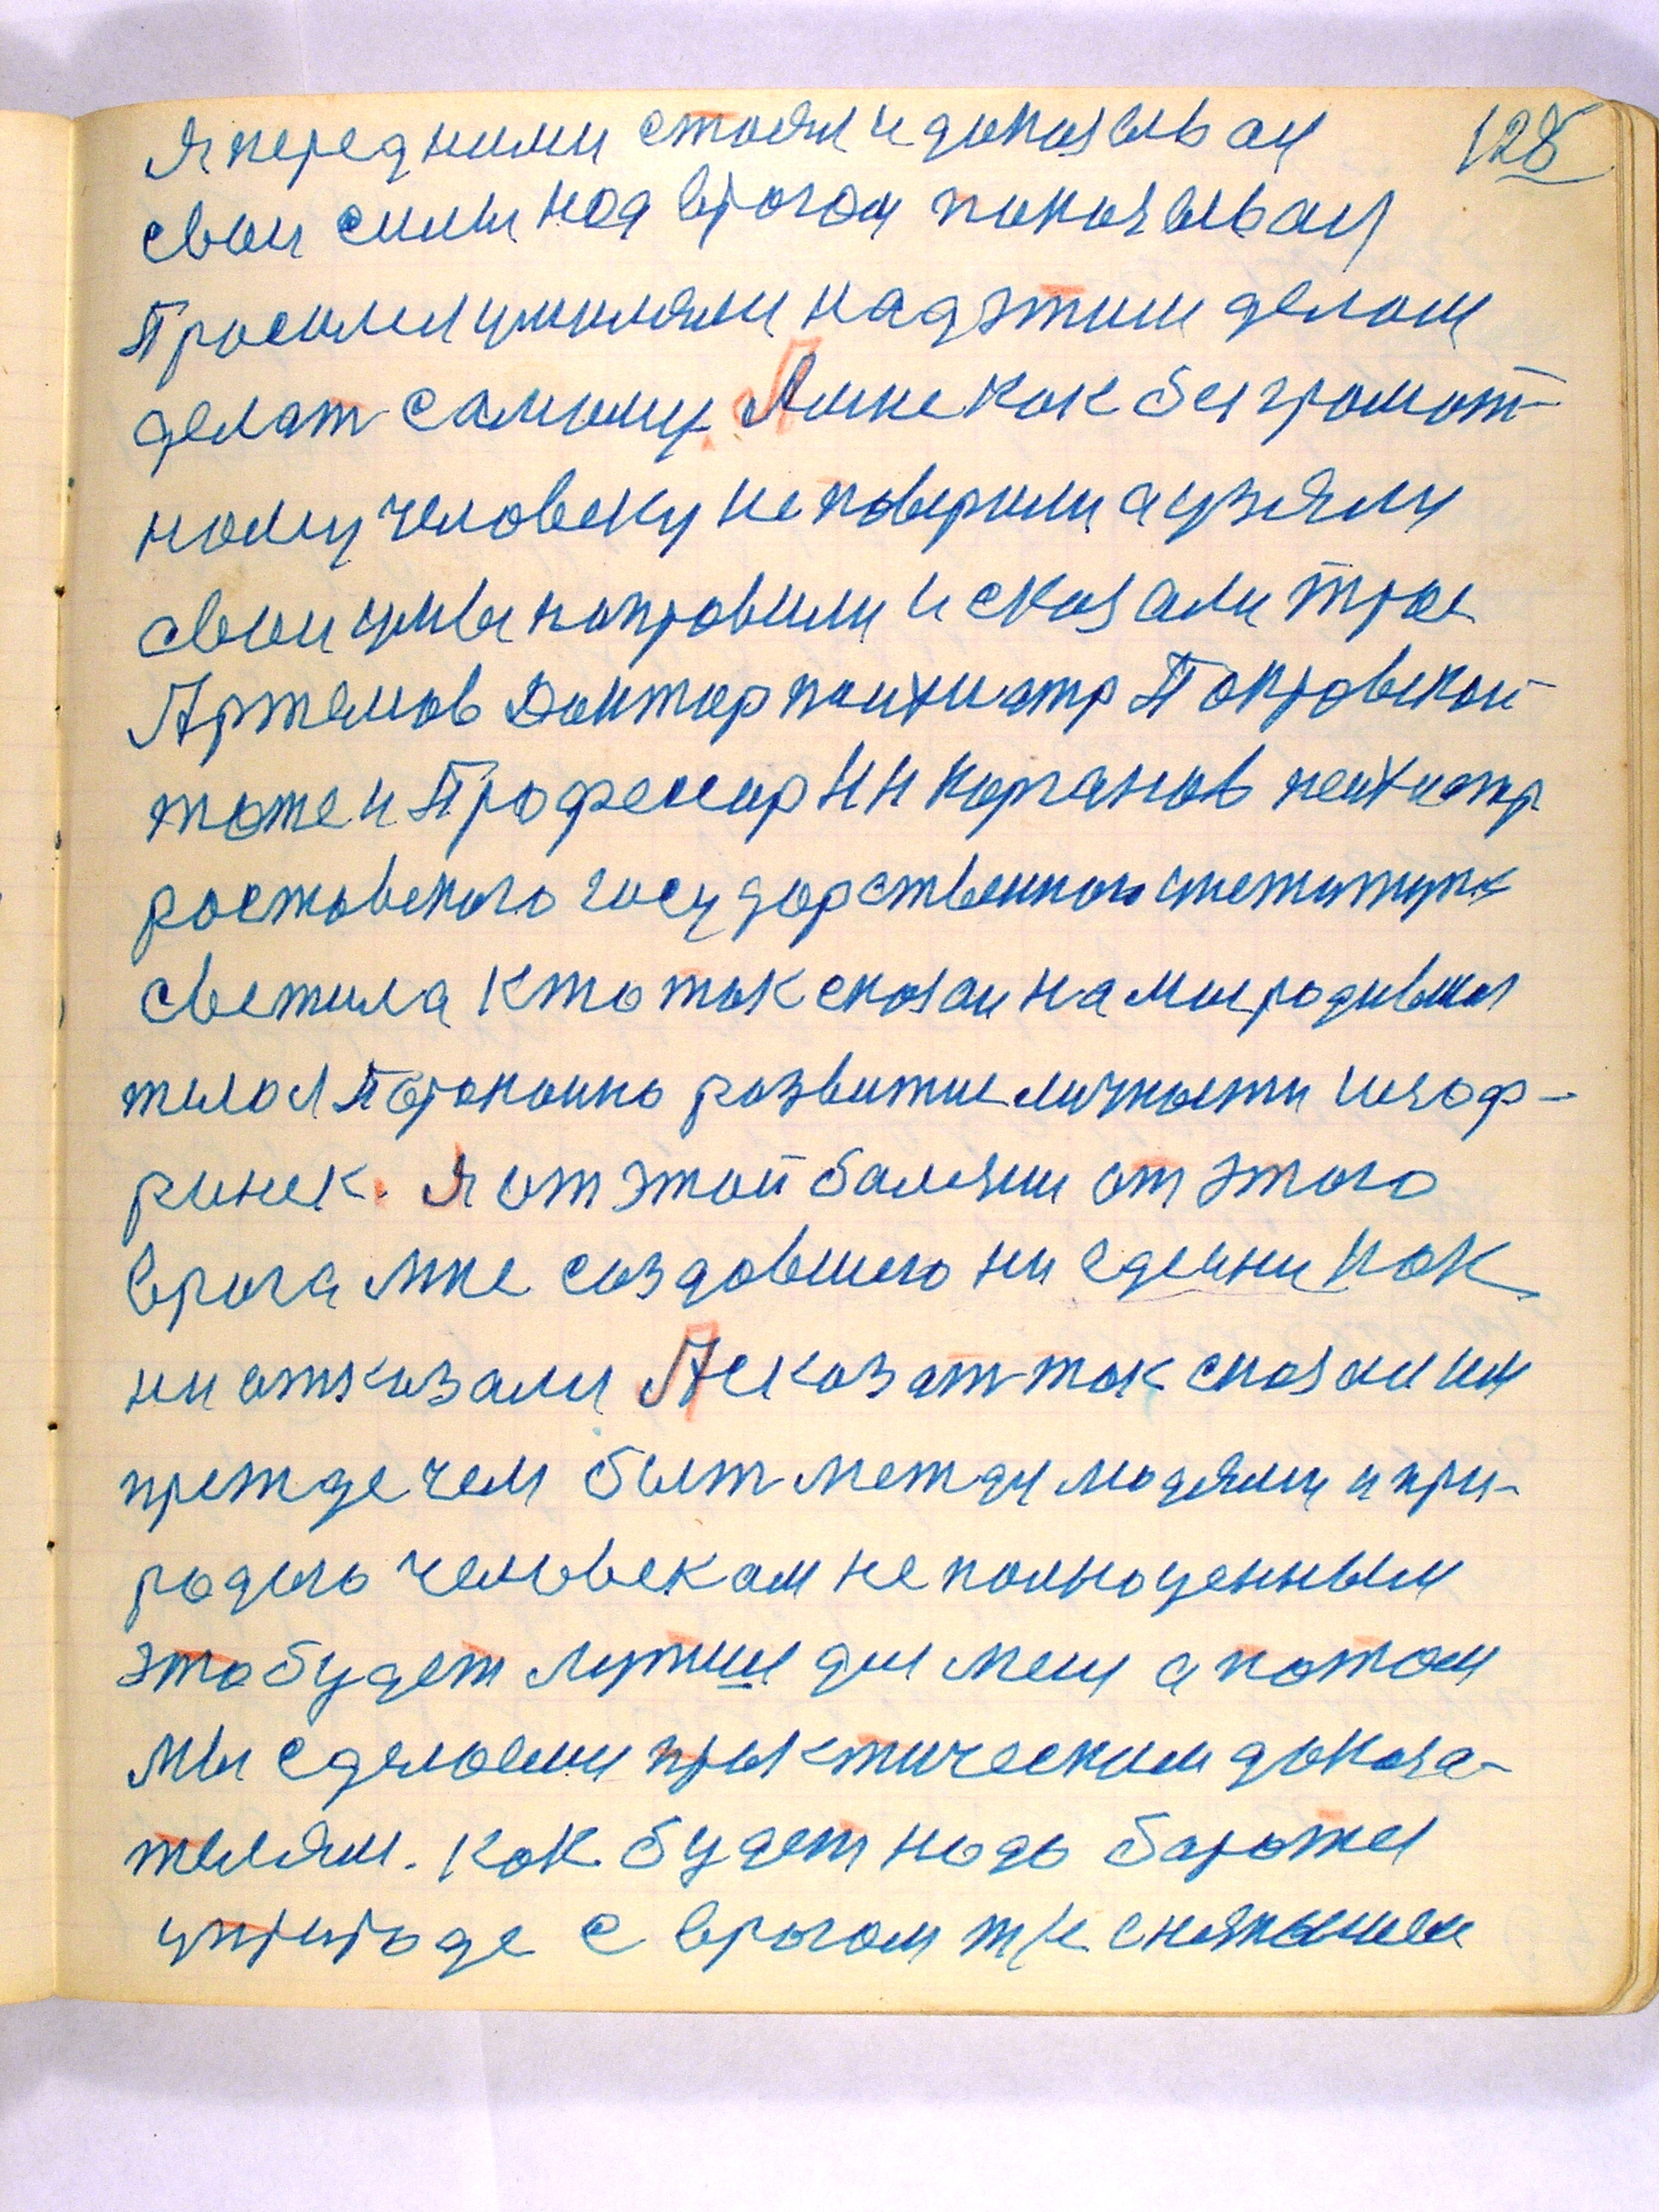 128
Я перед ними стоял и доказывал
свои силы над врогом показывал
Просил и умолял над этим делом
делат самому. А мне как безграмот-
ному человеку не поверили а узяли
свои умы направили и сказали трое
Артемов Доктор психиатр Покровской
тоже и Профессор НН Корганов психиатр
ростовского государственного института
светила кто так сказал на мы родивши
тело Пороноино развитие личности шизоф-
риник. Я от этой балезни от этого
врога мне создавшего ни едины как
ни отказали А сказат так сказал им
прежде чем быт между людями и при-
родою человеком не полноценным
это будет лутше для меня а потом
мы сделоеми практическим доказа-
телям. Как будет нада баротся
у природе с врогом